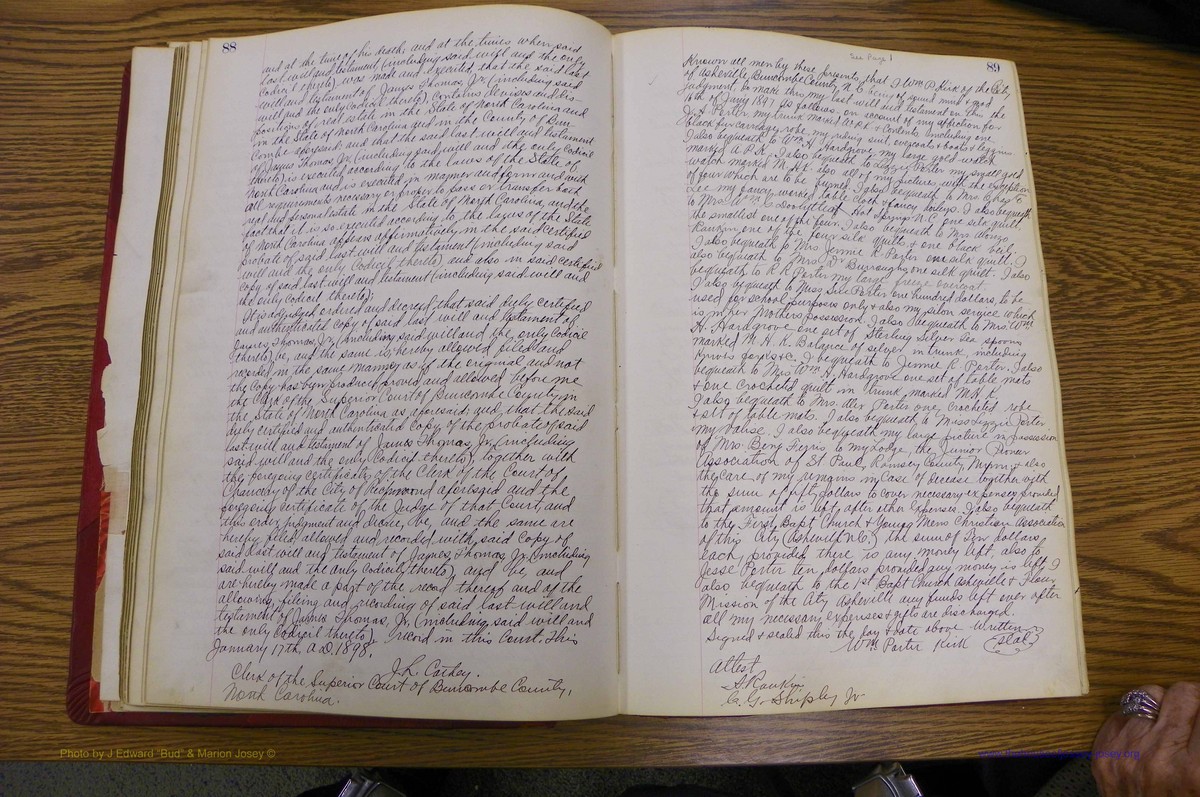 88
and at the time of his death and at the times when said
last will and testament (including said will and the only
codicil thereto) was made and executed, that the said last
will and testament of James Thomas, Jr. (including said
will and the only codicil thereto), contains devises and dis-
position of real estate in the State of North Carolina and
in the State of North Carolina and in the County of Bun-
combe aforesaid and that the said last will and testament
of James Thomas, Jr. (including said will and the only codicil
thereto) is executed according to the laws of the State of
North Carolina and is executed in manner and form and with
all requirements necessary or proper to pass or transfer both
real and personal estate in the State of North Carolina, and the
fact that it is so executed according to the laws of the State
of North Carolina appears affirmatively in the said certified
probate of said last will and testament (including said
will and the only codicil thereto) and also in said certified
copy of said last will and testament (including said will and
the only codicil thereto);
It is adjudged ordered and decreed that said duly certified
and authenticated copy of said last will and testament of
James Thomas, Jr. (including said will and the only codicil
thereto) be, and the same is hereby allowed filed and
recorded in the same manner as if the original and not
the copy has been produced proved and allowed before me
the Clerk of the Superior Court of Buncombe County in
the State of North Carolina as aforesaid and, that the said
duly certified and authenticated copy of the probate of said
last will and testament of James Thomas, Jr. (including
said will and the only codicil thereto), together with
the foregoing certificate of the Clerk of the Court of
Chancery of the City of Richmond aforesaid and the
foregoing certificate of the Judge of that Court, and
this order, judgment and decree, be, and the same are
hereby filed, allowed and recorded with said copy of
said last will and testament of James Thomas, Jr. (including
said will and the only codicil thereto), and be, and
are hereby made a part of the record thereof and of the
allowing, filing and recording of said last will and
testament of James Thomas, Jr. (including said will and
the only codicil thereto) of record in this Court. This
January 17th, A.D. 1898.
J.L. Cathey.
Clerk of the Superior Court of Buncombe County,
North Carolina.
See Page 1
89
Known all men by these presents, that I Wm. P. Kirk of the City
of Asheville, Buncombe County N.C. being of sound mind & mod
judgment do make this my last will and testament on this the
6th of Jany 1897 As follows, on account of my affection for
J. A. Porter my trunk marked W.P.K. & contents including one
black fur carriage robe, my riding suit, overcoats & boots & leggins.
I also bequeath to Wm. H. Hardgrove my large gold watch
marked A P.K. I also bequeath to Lizzy Porter my small gold
watch marked M.H.K. also all of my pictures with the exception
of four which are to be burned. I also bequeath to Mrs.
Lee my fancy worked table cloth & fancy doileys. I also bequeath
to Mrs. Wm. C. Hot Springs N.C. one silk quilt
the smallest one of the four. I also bequeath to Mrs. Alonzo
Rankin, one of the four silk quilts & one black veil.
I also bequeath to Mrs. Jennie R Porter one silk quilt; I
also bequeath to Mrs. Dr. Burroughs one silk quilt. I also
bequeath to R. R. Porter my large freeze overcoat.
I also bequeath to Miss Sue Porter one hundred dollars, to be
used for school purposes only & also my silver service, which
is in her Mothers possession. I also bequeath to Mrs. Wm
H. Hardgrove one set of Sterling Silver tea spoons
marked M. H. K. Balance of silver in trunk, including
Knives forks &c. I bequeath to Jennie R. Porter. I also
bequeath to Mrs. Wm. H. Hardgrove one set of table mats
& one crocheted quilt in trunk marked M.H.K.
I also bequeath to Mrs. Alex Porter one crocheted robe
& set of table mats. I also bequeath to Miss Lizzie Porter
my valise. I also bequeath my large picture in possession
of Mrs. Benj. to my Lodge, the Junior Pioneer
Association of St Paul, Ramsey County, Minn. & also
the care of my remains in case of decease together with
the sum of fifty dollars to cover necessary expenses provided
that amount is left, after other expenses. I also bequeath
to the First Bapt Church & Young Mens Christian Association
of this City (Asheville N.C.) the sum of Ten dollars
each, provided there is any money left, also to
Jesse Porter ten dollars provided any money is left, I
also bequeath to the 1st Bapt Church Asheville & Flower
Mission of the City Asheville any funds left over after
all my necessary expenses & gifts are discharged.
Signed & sealed this the day & date above written
Wm. Porter Kirk (seal)
Attest
A Rankin
C. G. Shipley Jr
Photo by J Edward "Bud" & Marion Josey ©